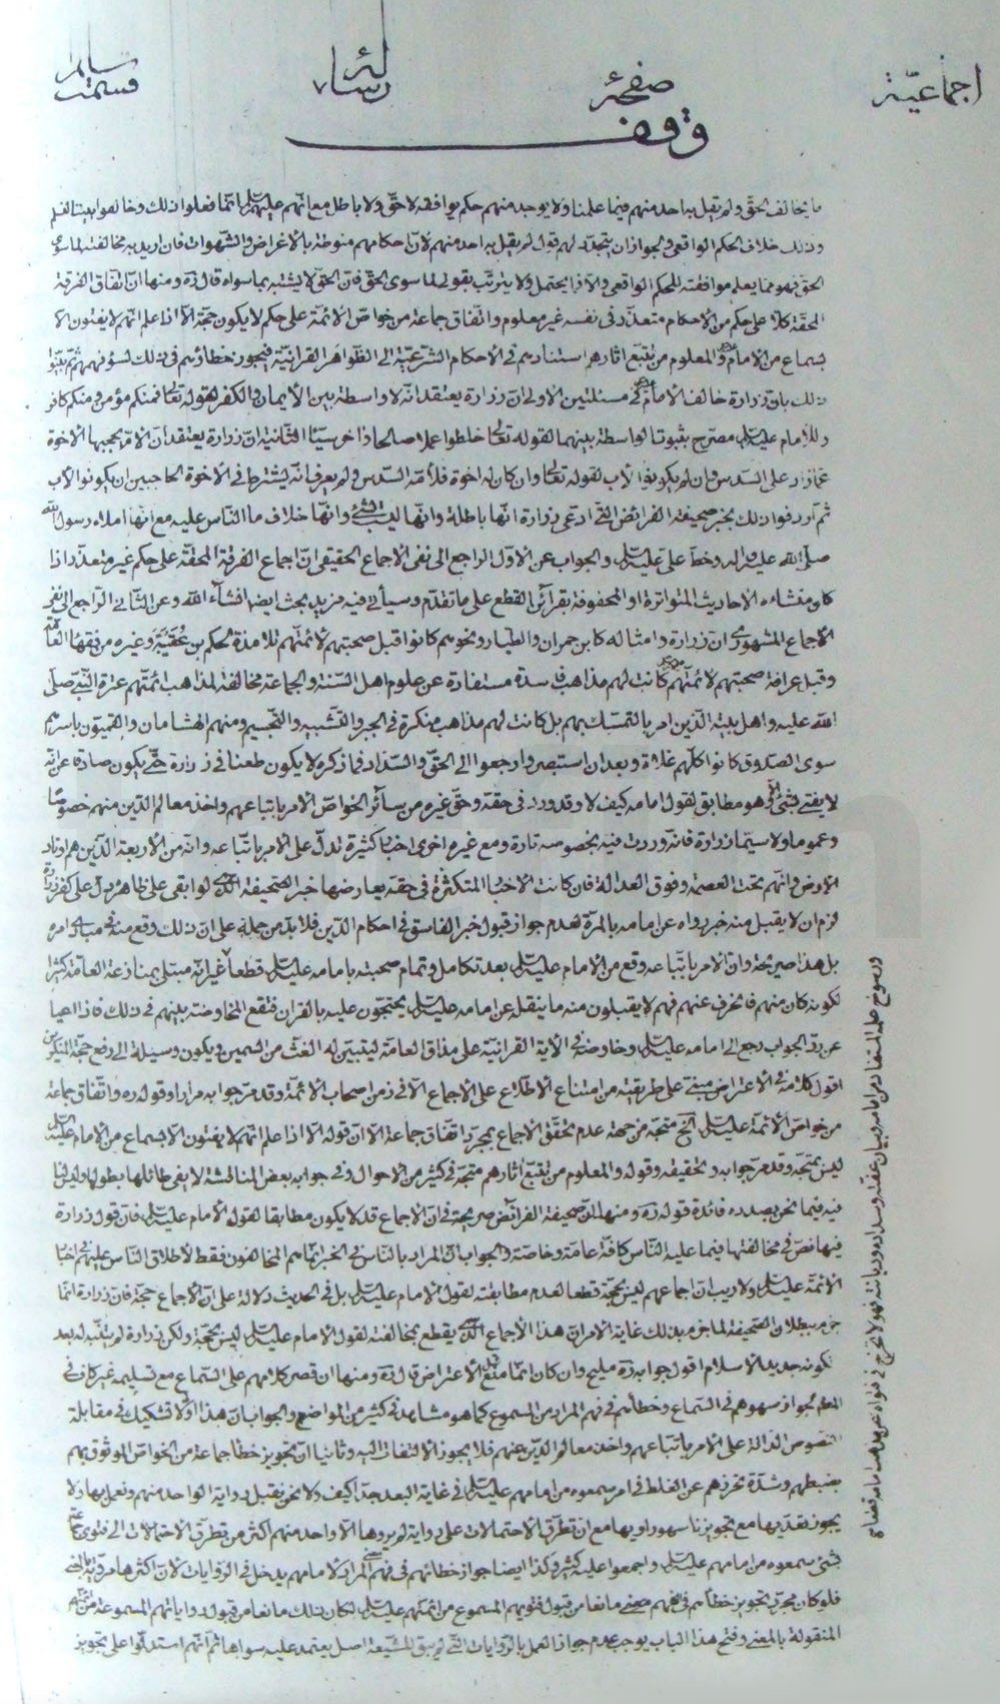 اجماعيّة
صفحهٔ
رسالهٔ
قسمت
وقف
ما يخالف الحقّ ولم تقبل به احد منهم فيما علمنا ولا يوجد منهم حكم يوافقه لا حقّ ولا باطل مع انّهم عليهم السلم انّما فعلوا ذلك وخالفوا
وذلك خلاف الحكم الواقعى والجواز ان يتجدّد لهم قول لم يقل به احد منهم لانّ احكامهم منوطة بالاغراض والشّهوات فان اريد به مخالفته لما سوى
الحقّ فهو ممّا يعلم موافقته للحكم الواقعى والّا فرا يحتمل ولا يترتّب بقولى لما سوى الحقّ فانّ الحقّ لا يشتبه بما سواه قال ره ومنها انّ اتّفاق الفرقة
المحقّة كلّا على حكم من الاحكام متعذّر فى نفسه غير معلوم واتّفاق جماعة من خواصّ الائمّة على حكم لا يكون حجّة الّا اذا علم انّهم لا يفتون الّا
بسماع من الامام والمعلوم من تتبّع اثارهم استنادهم فى الاحكام الشّرعيّة الى الظّواهر القرانيّة فيجوز خطاؤهم فى ذلك لسوء فهمهم ثمّ بيّنوا
ذلك بانّ زرارة خالف الامام فى مسئلتين الاولى انّ زرارة يعتقد انّه لا واسطة بين الايمان والكفر لقوله تعالى فمنكم مؤمن ومنكم كافر
والامام عليه السلم مصرّح بثبوت الواسطة بينهما لقوله تعالى خلطوا عملا صالحا واخر سيّئا الثّانية انّ زرارة يعتقد انّ الامّ يحجبها الاخوة
عمّا زاد على السّدس وان لم يكونوا لاب لقوله تعالى وان كان له اخوة فلامّه السّدس ولم يعرف انّه يشترط فى الاخوة الحاجبين ان يكونوا لاب
ثمّ اردفوا ذلك بخبر صحيفة الفرائض الّتى ادعى زرارة انّها باطلة وانّها ليست بشئ وانّها خلاف ما النّاس عليه مع انّها املاء رسول الله
صلّى الله عليه واله وخطّ على عليه السلم والجواب عن الاوّل الراجع الى نفى الاجماع الحقيقى انّ اجماع الفرقة المحقّة على حكم غير متعذّر اذا
كان منشاءه الاحاديث المتواترة او المحفوفة بقرائن القطع على ما تقدّم وسيأتى فيه مزيد بحث ايضا انشاء الله وعن الثّانى الراجع الى نفى
الاجماع المشهورى انّ زرارة وامثاله كابن حمران والطيار ونحوهم كانوا قبل صحبتهم لائمّتهم تلامذة الحكم بن عُقيبَة وغيره من فقهاء العامّة
وقبل عرافة صحبتهم لائمّتهم كانت لهم مذاهب فاسدة مستفادة عن علوم اهل السّنة والجماعة مخالفة لمذاهب ائمّتهم عترة النّبىّ صلّى
الله عليه واهل بيته الّذين امر بالتمسّك بهم بل كانت لهم مذاهب منكرة فى الجبر والتّشبيه والتّجسيم ومنهم الهشامان والقميّون باسرهم
سوى الصّدوق كانوا كلّهم غلاة وبعد ان استبصروا رجعوا الى الحقّ والسّداد فما ذكره لا يكون طعنا فى زرارة حتّى يكون صادقا عن انّه
لا يفتى بشئ الّا وهو مطابق لقول امامه كيف لا وقد ورد فى حقّه وحقّ غيره من سائر الخواصّ الامر باتباعهم واخذ معالم الدّين منهم خصوصًا
وعموما ولا سيّما زرارة فانّه وردت فيه بخصوصه تارة ومع غيره اخرى اخبار كثيرة تدلّ على الامر باتّباعه وانّه من الاربعة الّذين هم اوتاد
الارض وانّهم تحت العصمة وفوق العدالة فان كانت الاخبار المتكثرة فى حقّه يعارضها خبر الصّحيفة الّذى لو ابقى على ظاهره يدلّ على كفر زرارة
لزم ان لا يقبل منه خبر رواه عن امامه بالمرّة لعدم جواز قبول خبر الفاسق فى احكام الدّين فلا بدّ من حمله على انّ ذلك وقع منه فى مبادى امره
بل هذا صريحه وانّ الامر باتّباعه وقع من الامام عليه السلم بعد تكامل وتمام صحبته بامامه عليه السلم قطعا غير انّه مبتلى بمنازعة العامّة كثيرا
لكونه كان منهم فانحرف عنهم فهم لا يقبلون منه ما ينقله عن امامه عليه السلم يحتجّون عليه بالقران فتقع المخاوضة بينهم فى ذلك فاذا اعيا
عن ردّ الجواب رجع الى امامه عليه السلم وخاوضه فى الاية القرانيّة على مذاق العامّة ليتبيّن له الغثّ من السّمين ويكون وسيلة الى رفع حجّة المنكرين
اقول كلامه فى الاعتراض مبنىّ على طريقته من امتناع الاطّلاع على الاجماع الّا فى زمن اصحاب الائمّة وقد مرّ جوابه مرارا وقوله ره واتّفاق جماعة
من خواصّ الائمّة عليهم السلم الخ متّجه من جهة عدم تحقّق الاجماع بمجرّد اتّفاق جماعة الّا انّ قوله الّا اذا علم انّهم لا يفتون الّا بسماع من الامام عليه السلم
ليس بمتّجه وقد مرّ جوابه وتحقيقه وقوله والمعلوم من تتبّع اثارهم متّجه فى كثير من الاحوال وفى جوابه بعض المناقشة لا يفى طائلها بطولها وليس لنا
فيه فيما نحن بصدده فائدة قوله ره ومنها انّ صحيفة الفرائض صريحة فى انّ الاجماع قد لا يكون مطابقا لقول الامام عليه السلم فان قول زرارة
فيها نصّ فى مخالفتها فيما عليه النّاس كافّة عامّة وخاصّة والجواب انّ المراد بالنّاس فى الخبر انّما هم المخالفون فقط لاطلاق النّاس عليهم فى اخبار
الائمّة عليهم السلم ولا ريب انّ اجماعهم ليس بحجّة قطعا لعدم مطابقته لقول الامام عليه السلم بل فى الحديث دلالة على انّ الاجماع حجّة فانّ زرارة انّما
جزم ببطلان الصّحيفة لما جزم بذلك غاية الامر انّ هذا الاجماع الّذى يقطع بمخالفته لقول الامام عليه السلم ليس بحجّة ولكن زرارة لم يتنبّه له بعد
لكونه جديد الاسلام اقول جوابه ره مليح وان كان انّما منع الاعتراض قال ره ومنها ان قصر كلامهم على السّماع مع تسليمه غير كاف فى
العلم لجواز سهوهم فى السّماع وخطائهم فى فهم المراد من المسموع كما هو مشاهد فى كثير من المواضع والجواب انّ هذا اوّلا تشكيك فى مقابلة
النّصوص الدّالة على الامر باتّباعهم واخذ معالم الدّين عنهم فلا يجوز الالتفات اليه وثانيا انّ تجويز خطأ جماعة من الخواصّ الموثوق بهم
بضبطهم وشدّة تحرّزهم عن الغلط فى امر سمعوه من امامهم عليه السلم فى غاية البعد جدّا كيف لا ونحن نقبل رواية الواحد منهم ونعمل بها ولا
يجوز نقد يها مع تجويزنا سهو راويها مع ان تطرّق الاحتمالات على رواية لم يروها الّا واحد منهم اكثر من تطرّق الاحتمالات الى فتوى جماعة
بشئ سمعوه من امامهم عليه السلم واجمعوا عليه كثير وكذا ايضا جواز خطائهم فى فهم المراد كلامهم يدخل فى الرّوايات لانّ اكثرها مروىّ بالمعنى
فلو كان مجرّد تجويز خطائهم فى فهم معنى مانعا من قبول فتويهم المسموع من ائمّتهم عليهم السلم لكان ذلك مانعا من قبول رواياتهم المسموعة من ائمّتهم
المنقولة بالمعنى وفتح هذا الباب يوجب عدم جواز العمل بالرّوايات الّتى لم يبق للشّيعة اصل يعتمد عليه سواها ثمّ انّهم استدلّوا على تجويز
ورسوخ علمه المستفاد من امامه وبيان عقله وسداده وديانته فهو لا يخرج فى فتواه عن مذهب امامه قضاء